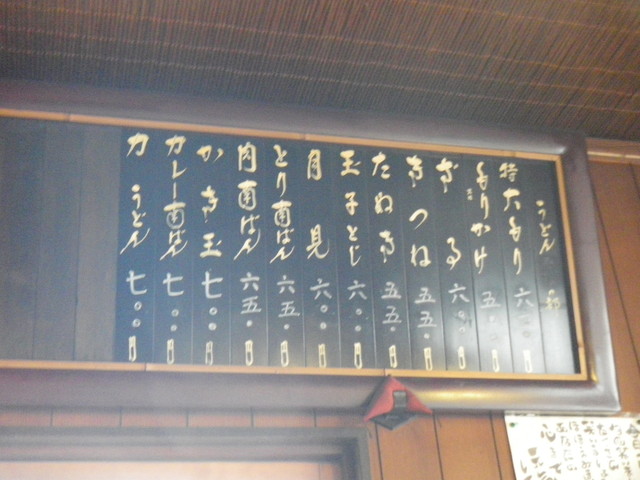 うどん
特大もり 六〇〇円
もりかけ 五〇〇円
ざる 六〇〇円
きつね 五五〇円
たぬき 五五〇円
玉子とじ 六〇〇円
月見 六〇〇円
とり南ばん 六五〇円
肉南ばん 六五〇円
かき玉 七〇〇円
カレー南ばん 七〇〇円
力うどん 七〇〇円